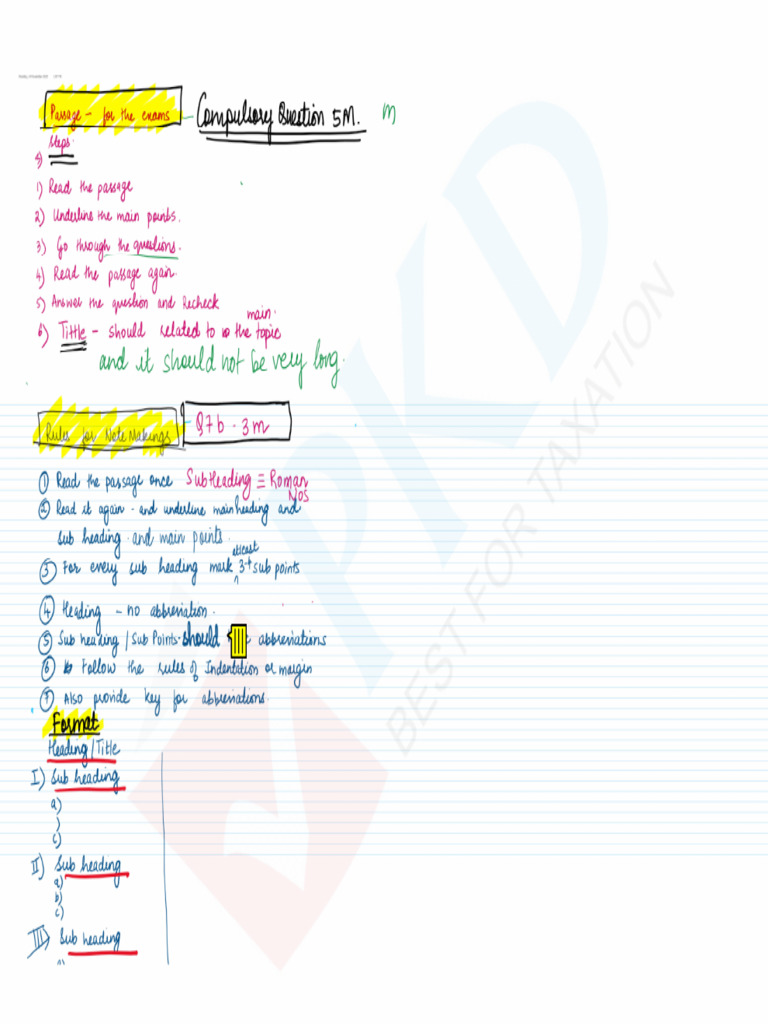 Passage - for the exams - Compulsory Question 5M. m
Steps.
1) Read the passage
2) Underline the main points.
3) Go through the questions.
4) Read the passage again.
5) Answer the question and Recheck
main.
6) Tittle - should related to the topic
and it should not be very long.
Rules for Note Makings - Q7b - 3m
① Read the passage once Subheading ≡ Roman
Nos
② Read it again - and underline main heading and
sub heading - and main points.
atleast
③ For every sub heading mark ^ 3+ sub points
④ Heading - no abbreviation.
⑤ Sub heading / Sub Points - should abbreviations
⑥ Follow the rules of Indentation or margin
⑦ Also provide key for abbreviations.
Format
Heading / Title
I) Sub heading
a)
)
c)
II) Sub heading
a)
b)
c)
III) Sub heading
PKD
BEST FOR TAXATION